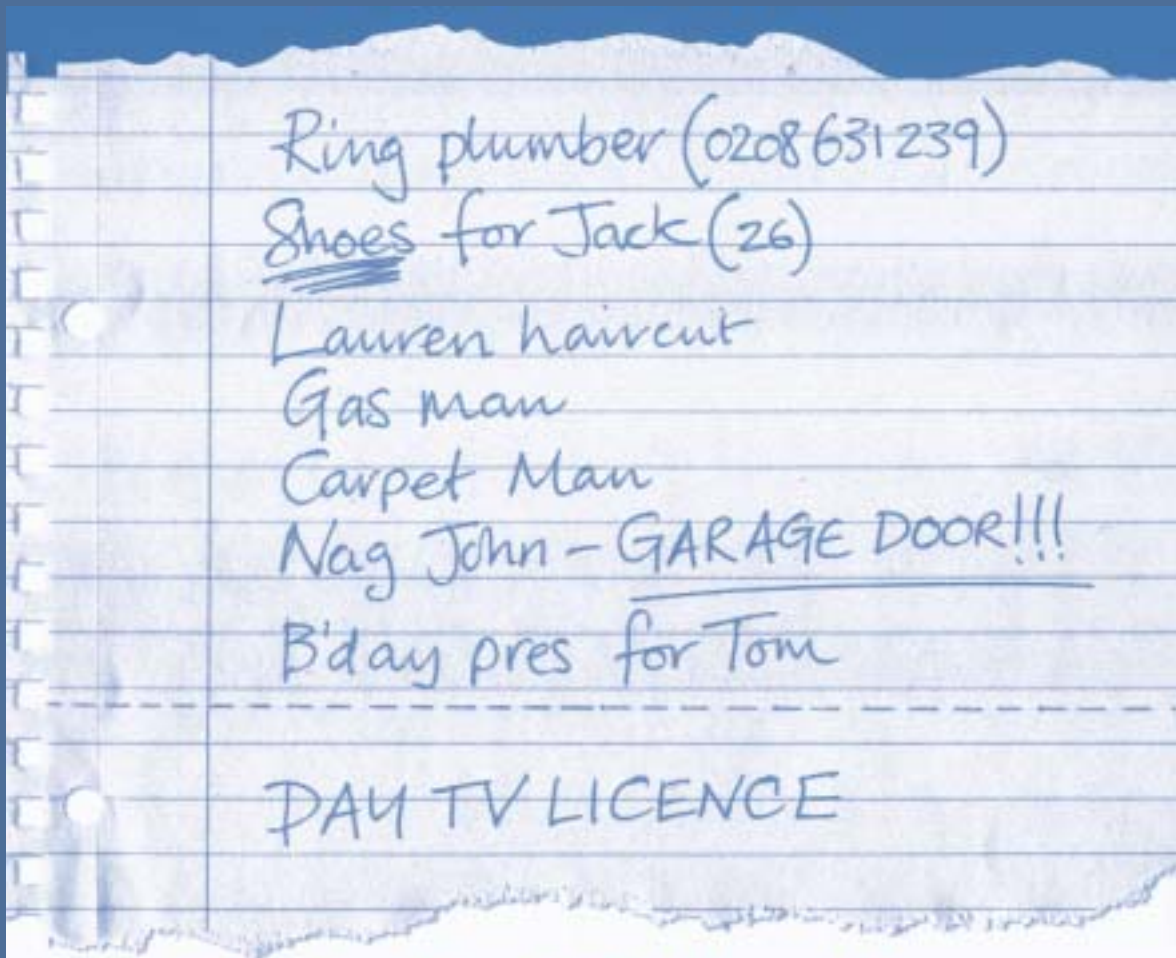 Ring plumber (0208631239)
Shoes for Jack (26)
Lauren haircut
Gas man
Carpet Man
Nag John - GARAGE DOOR!!!
B'day pres for Tom
PAY TV LICENCE